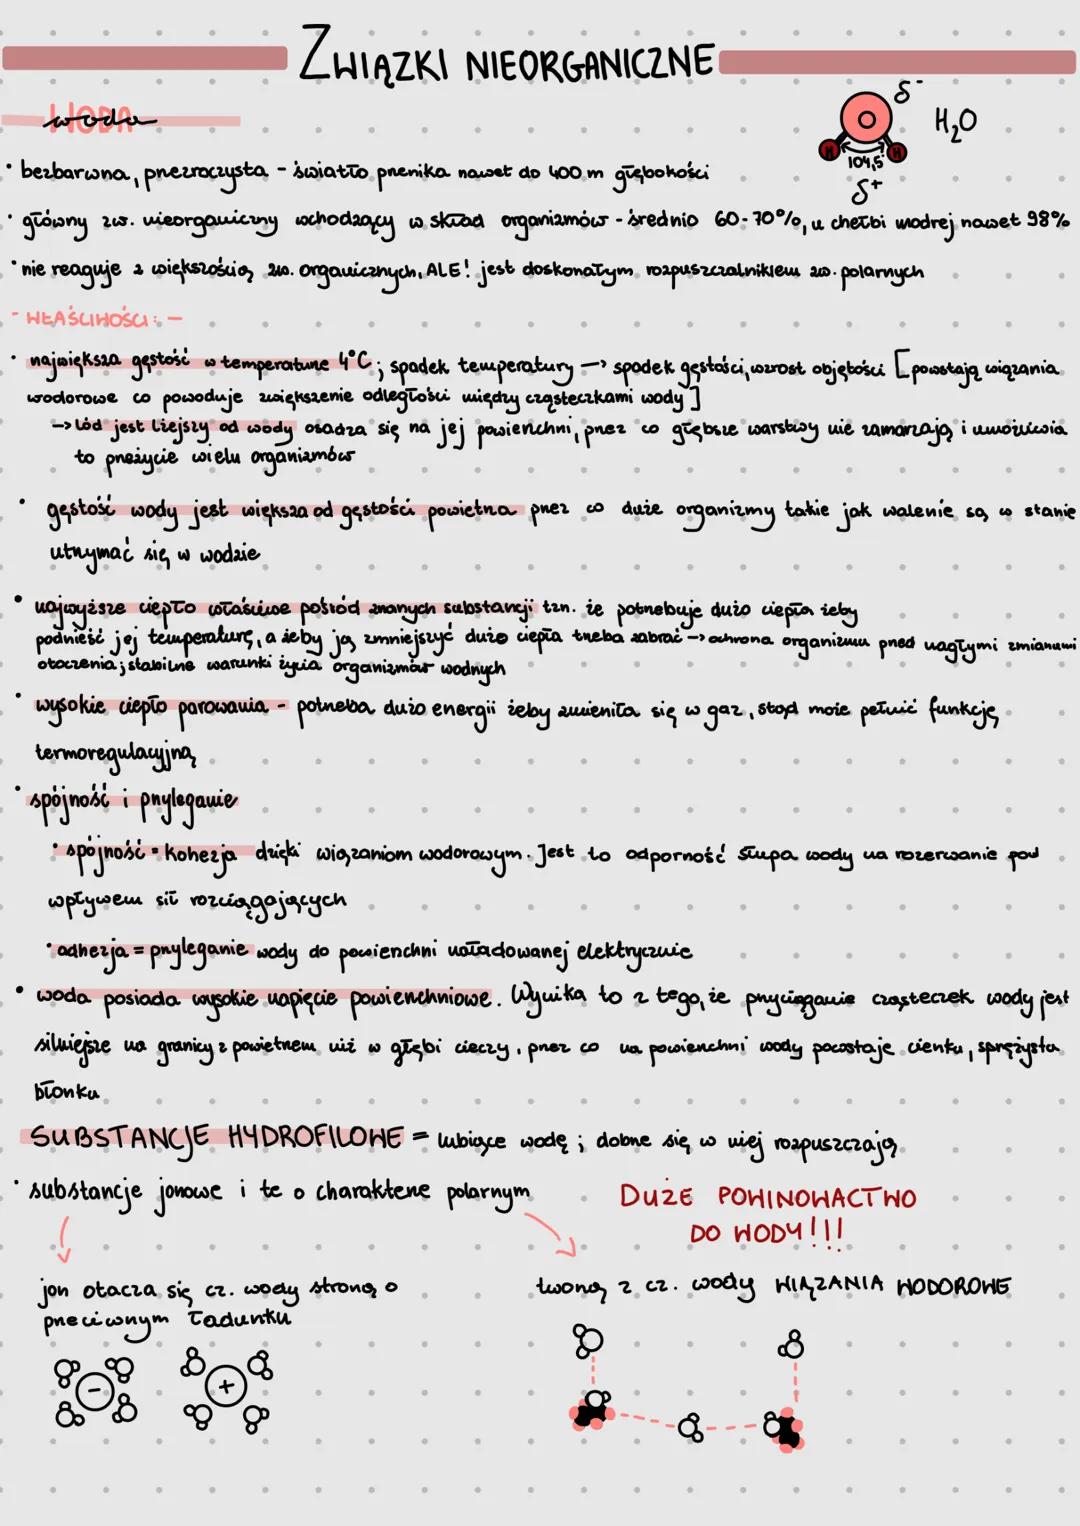 ZWIĄZKI NIEORGANICZNE
WODA
woda
δ-
H₂O
O
H H
104,5
δ+
• bezbarwna, przezroczysta - światło przenika nawet do 400 m głębokości
• główny zw. nieorganiczny wchodzący w skład organizmów - średnio 60-70%, u chełbi modrej nawet 98%
• nie reaguje z większością zw. organicznych, ALE! jest doskonałym rozpuszczalnikiem zw. polarnych
- WŁAŚCIWOŚCI: -
• największa gęstość w temperaturze 4°C; spadek temperatury → spadek gęstości, wzrost objętości [powstają wiązania
wodorowe co powoduje zwiększenie odległości między cząsteczkami wody]
→ lód jest lżejszy od wody osadza się na jej powierzchni, przez co głębsze warstwy nie zamarzają i umożliwia
to przeżycie wielu organizmów
• gęstość wody jest większa od gęstości powietrza przez co duże organizmy takie jak walenie są w stanie
utrzymać się w wodzie
• najwyższe ciepło właściwe pośród znanych substancji tzn. że potrzebuje dużo ciepła żeby
podnieść jej temperaturę, a żeby ją zmniejszyć dużo ciepła trzeba zabrać → ochrona organizmu przed nagłymi zmianami
otoczenia; stabilne warunki życia organizmów wodnych
• wysokie ciepło parowania - potrzeba dużo energii żeby zmieniła się w gaz, stąd może pełnić funkcję
termoregulacyjną
• spójność i przyleganie
• spójność = kohezja dzięki wiązaniom wodorowym. Jest to odporność słupa wody na rozerwanie pod
wpływem sił rozciągających
• adhezja = przyleganie wody do powierzchni naładowanej elektrycznie
• woda posiada wysokie napięcie powierzchniowe. Wynika to z tego, że przyciąganie cząsteczek wody jest
silniejsze na granicy z powietrzem niż w głębi cieczy, przez co na powierzchni wody pozostaje cienka, sprężysta
błonka
SUBSTANCJE HYDROFILOWE = lubiące wodę; dobrze się w niej rozpuszczają
• substancje jonowe i te o charakterze polarnym
DUŻE POWINOWACTWO
DO WODY!!!
jon otacza się cz. wody stroną o
przeciwnym ładunku
tworzą z cz. wody WIĄZANIA WODOROWE
- +